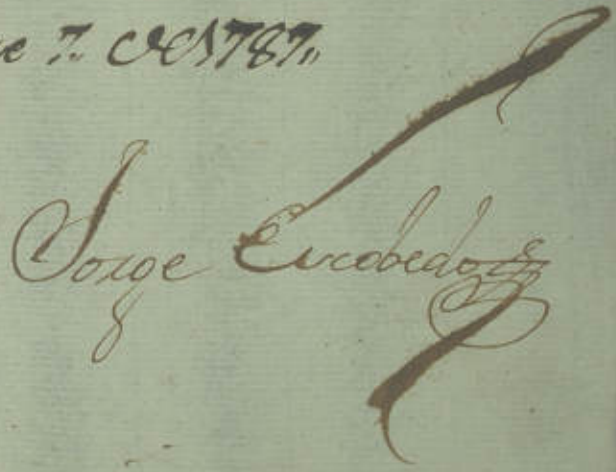 e 7. de 1787.
Jorge Escobedo